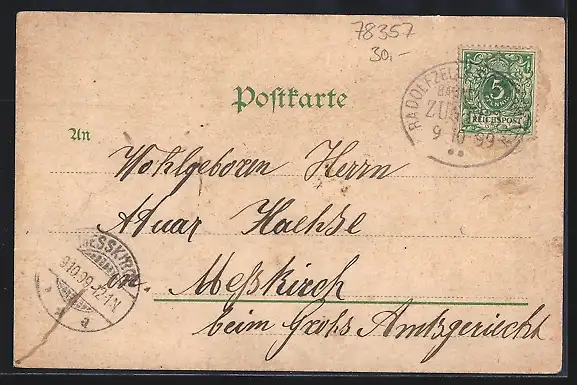 78357
30,-
Postkarte
RADOLFZELL
BAHN
ZUG
9 10 99
5
REICHSPOST
An
Wohlgeboren Herrn
Aktuar Haehse
MESSKIRCH
9.10.99.-12-1N.
a
in Meßkirch
beim Gross Amtsgericht